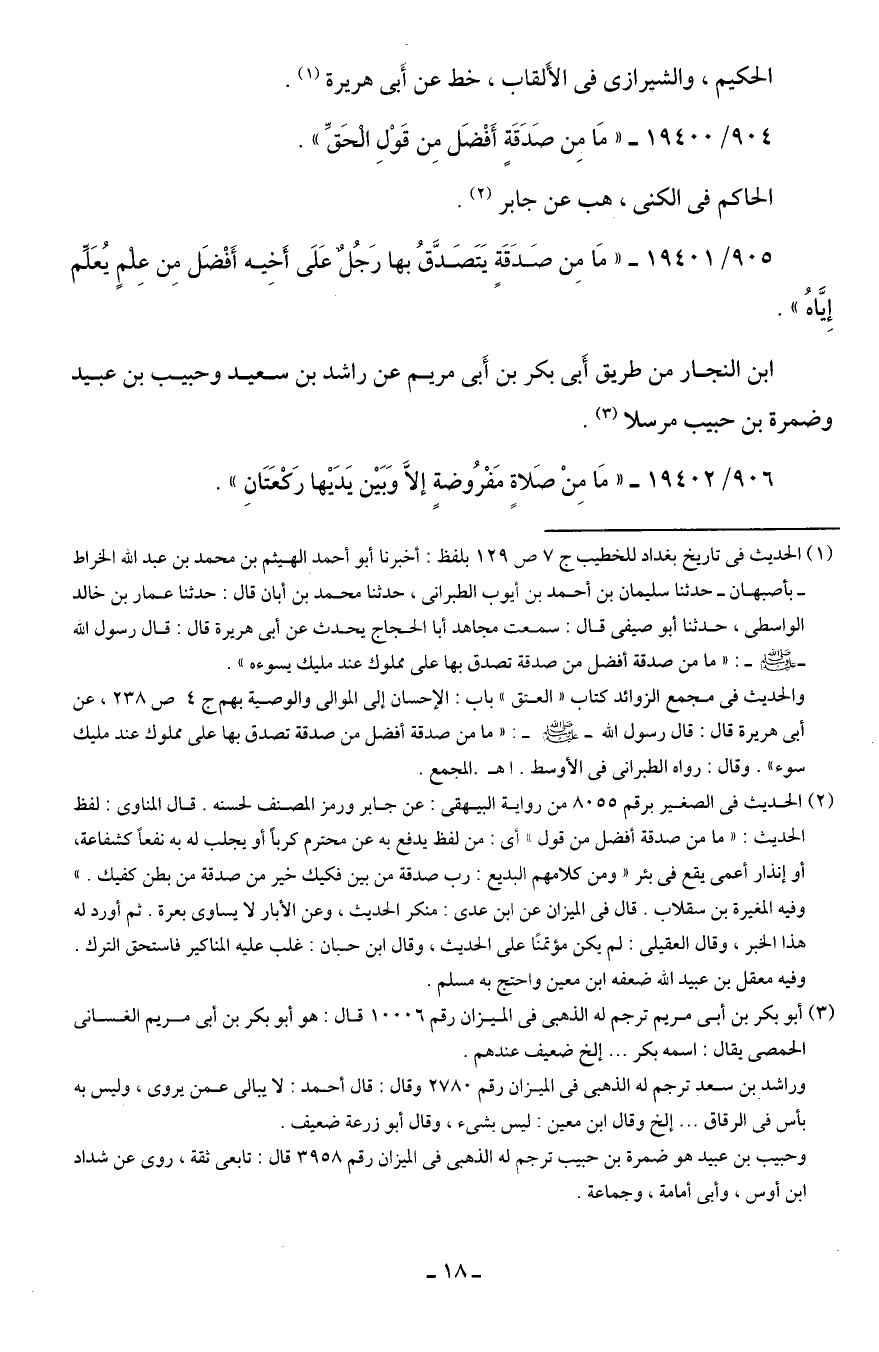 الحكيم ، والشيرازى فى الألقاب ، خط عن أبى هريرة (١) .
٩٠٤/ ١٩٤٠٠ ـ « مَا مِن صَدَقَةٍ أَفْضَل مِن قَوْلِ الْحَقِّ » .
الحاكم فى الكنى ، هب عن جابر (٢) .
٩٠٥/ ١٩٤٠١ ـ « مَا مِن صَدَقَةٍ يَتَصَدَّقُ بها رَجُلٌ عَلَى أَخِيه أَفْضَل مِن عِلْمٍ يُعَلِّم
إِيَّاهُ » .
ابن النجار من طريق أبى بكر بن أبى مريم عن راشد بن سعيد وحبيب بن عبيد
وضمرة بن حبيب مرسلا (٣) .
٩٠٦/ ١٩٤٠٢ ـ « مَا مِنْ صَلاةٍ مَفْرُوضةٍ إلاَّ وَبَيْن يَدَيْها رَكْعَتَانِ » .
(١) الحديث فى تاريخ بغداد للخطيب ج ٧ ص ١٢٩ بلفظ : أخبرنا أبو أحمد الهيثم بن محمد بن عبد الله الخراط
ـ بأصبهان ـ حدثنا سليمان بن أحمد بن أيوب الطبرانى ، حدثنا محمد بن أبان قال : حدثنا عمار بن خالد
الواسطى ، حدثنا أبو صيفى قال : سمعت مجاهد أبا الحجاج يحدث عن أبى هريرة قال : قال رسول الله
ـ ﷺ ـ : « ما من صدقة أفضل من صدقة تصدق بها على مملوك عند مليك يسوءه » .
والحديث فى مجمع الزوائد كتاب « العتق » باب : الإحسان إلى الموالى والوصية بهم ج ٤ ص ٢٣٨ ، عن
أبى هريرة قال : قال رسول الله ـ ﷺ ـ : « ما من صدقة أفضل من صدقة تصدق بها على مملوك عند مليك
سوء» . وقال : رواه الطبرانى فى الأوسط . ا هـ .المجمع .
(٢) الحديث فى الصغير برقم ٨٠٥٥ من رواية البيهقى : عن جابر ورمز المصنف لحسنه . قال المناوى : لفظ
الحديث : « ما من صدقة أفضل من قول » أى : من لفظ يدفع به عن محترم كرباً أو يجلب له به نفعاً كشفاعة،
أو إنذار أعمى يقع فى بئر « ومن كلامهم البديع : رب صدقة من بين فكيك خير من صدقة من بطن كفيك . »
وفيه المغيرة بن سقلاب . قال فى الميزان عن ابن عدى : منكر الحديث ، وعن الأبار لا يساوى بعرة . ثم أورد له
هذا الخبر ، وقال العقيلى : لم يكن مؤتمنًا على الحديث ، وقال ابن حبان : غلب عليه المناكير فاستحق الترك .
وفيه معقل بن عبيد الله ضعفه ابن معين واحتج به مسلم .
(٣) أبو بكر بن أبى مريم ترجم له الذهبى فى الميزان رقم ١٠٠٠٦ قال : هو أبو بكر بن أبى مريم الغسانى
الحمصى يقال : اسمه بكر ... إلخ ضعيف عندهم .
وراشد بن سعد ترجم له الذهبى فى الميزان رقم ٢٧٨٠ وقال : قال أحمد : لا يبالى عمن يروى ، وليس به
بأس فى الرقاق ... إلخ وقال ابن معين : ليس بشىء ، وقال أبو زرعة ضعيف .
وحبيب بن عبيد هو ضمرة بن حبيب ترجم له الذهبى فى الميزان رقم ٣٩٥٨ قال : تابعى ثقة ، روى عن شداد
ابن أوس ، وأبى أمامة ، وجماعة .
ـ ١٨ ـ